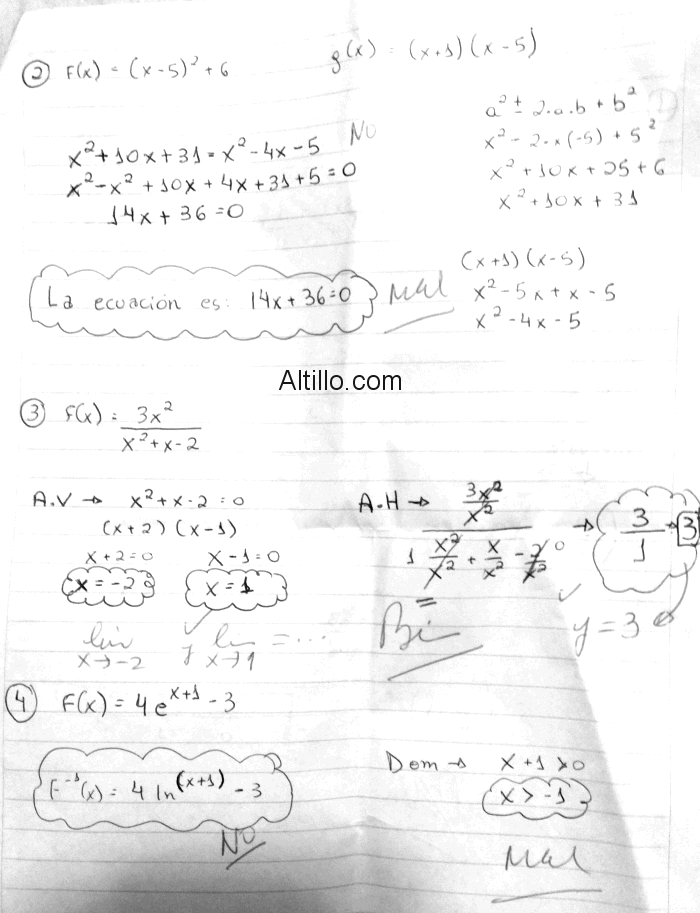 ② F(x) = (x-5)² + 6
g(x) = (x+1)(x-5)
a² ± 2·a·b + b²
x² - 2·x(-5) + 5²
x² + 10x + 25 + 6
x² + 10x + 31
x² + 10x + 31 = x² - 4x - 5
No
x² - x² + 10x + 4x + 31 + 5 = 0
14x + 36 = 0
(x+1)(x-5)
x² - 5x + x - 5
x² - 4x - 5
La ecuación es: 14x + 36 = 0
Mal
Altillo.com
③ F(x) = 3x² / x² + x - 2
A.V → x² + x - 2 = 0
(x+2)(x-1)
x+2=0 x-1=0
x=-2 x=1
lim x→-2 y lim x→1 = ...
A.H → 3x²/x² / 1 x²/x² + x/x² - 2/x² 0 → 3/1 → 3
y = 3
④ F(x) = 4e^(x+1) - 3
F⁻¹(x) = 4 ln^(x+1) - 3
No
Dom → x+1 > 0
x > -1
Mal